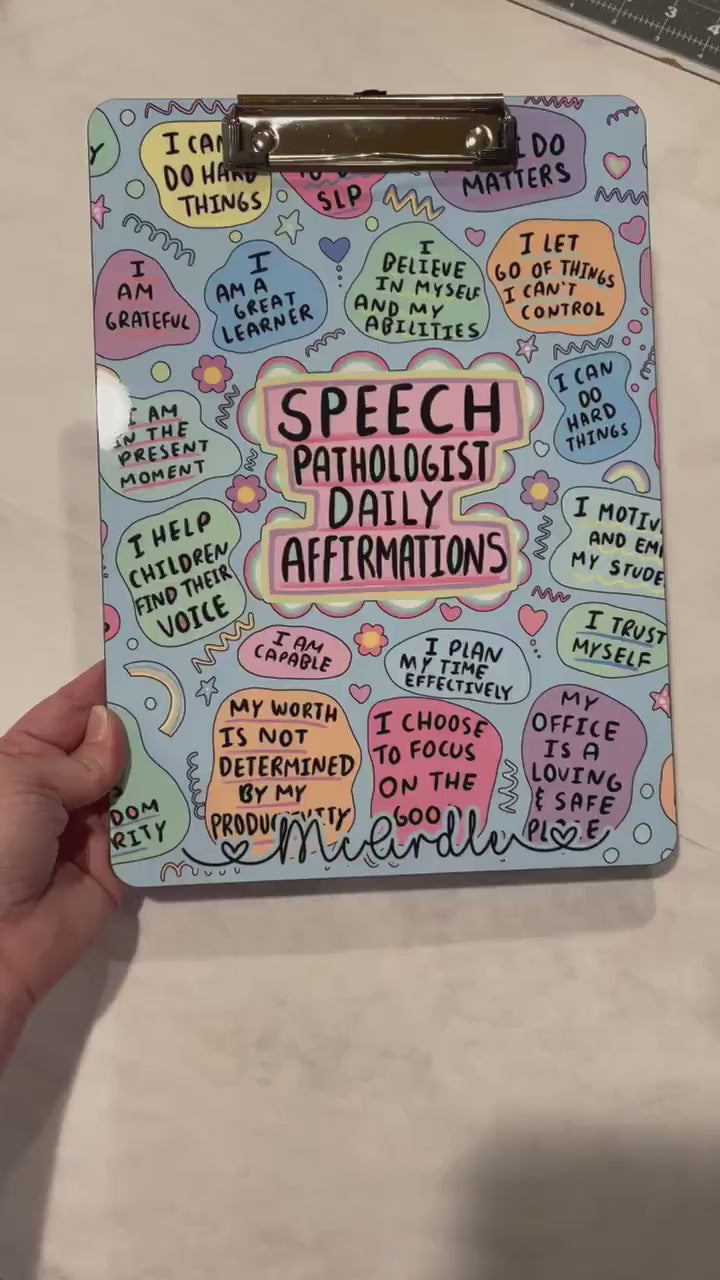 I CAN
DO HARD
THINGS
SLP
I DO
MATTERS
Y
I
AM
GRATEFUL
I
AM A
GREAT
LEARNER
I
BELIEVE
IN MYSELF
AND MY
ABILITIES
I LET
GO OF THINGS
I CAN'T
CONTROL
I AM
IN THE
PRESENT
MOMENT
SPEECH
PATHOLOGIST
DAILY
AFFIRMATIONS
I CAN
DO
HARD
THINGS
I HELP
CHILDREN
FIND THEIR
VOICE
I MOTIV
AND EM
MY STUDE
I AM
CAPABLE
I PLAN
MY TIME
EFFECTIVELY
I TRUST
MYSELF
DOM
RITY
MY WORTH
IS NOT
DETERMINED
BY MY
PRODUCTIVITY
I CHOOSE
TO FOCUS
ON THE
GOO
MY
OFFICE
IS A
LOVING
& SAFE
PLACE
McArdle
3
4